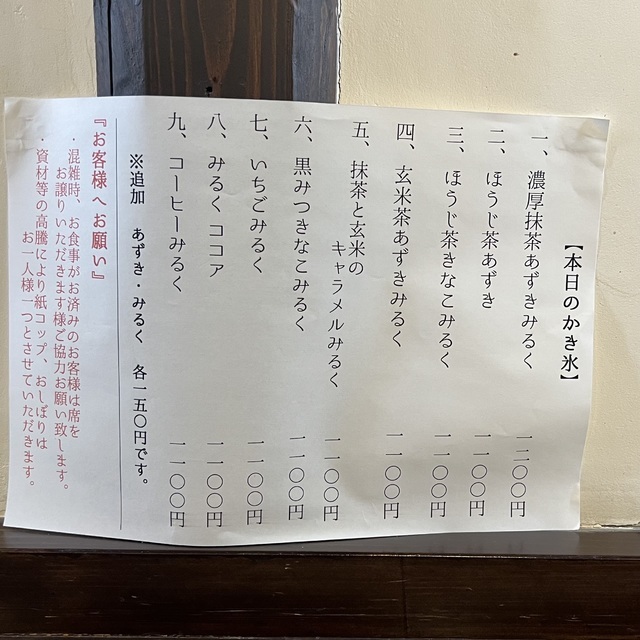 【本日のかき氷】
一、濃厚抹茶あずきみるく 一二〇〇円
二、ほうじ茶あずき 一一〇〇円
三、ほうじ茶きなこみるく 一一〇〇円
四、玄米茶あずきみるく 一一〇〇円
五、抹茶と玄米の
キャラメルみるく 一一〇〇円
六、黒みつきなこみるく 一一〇〇円
七、いちごみるく 一一〇〇円
八、みるくココア 一一〇〇円
九、コーヒーみるく 一一〇〇円
※追加 あずき・みるく 各一五〇円です。
『お客様へお願い』
・混雑時、お食事がお済みのお客様は席を
お譲りいただきます様ご協力お願い致します。
・資材等の高騰により紙コップ、おしぼりは
お一人様一つとさせていただきます。